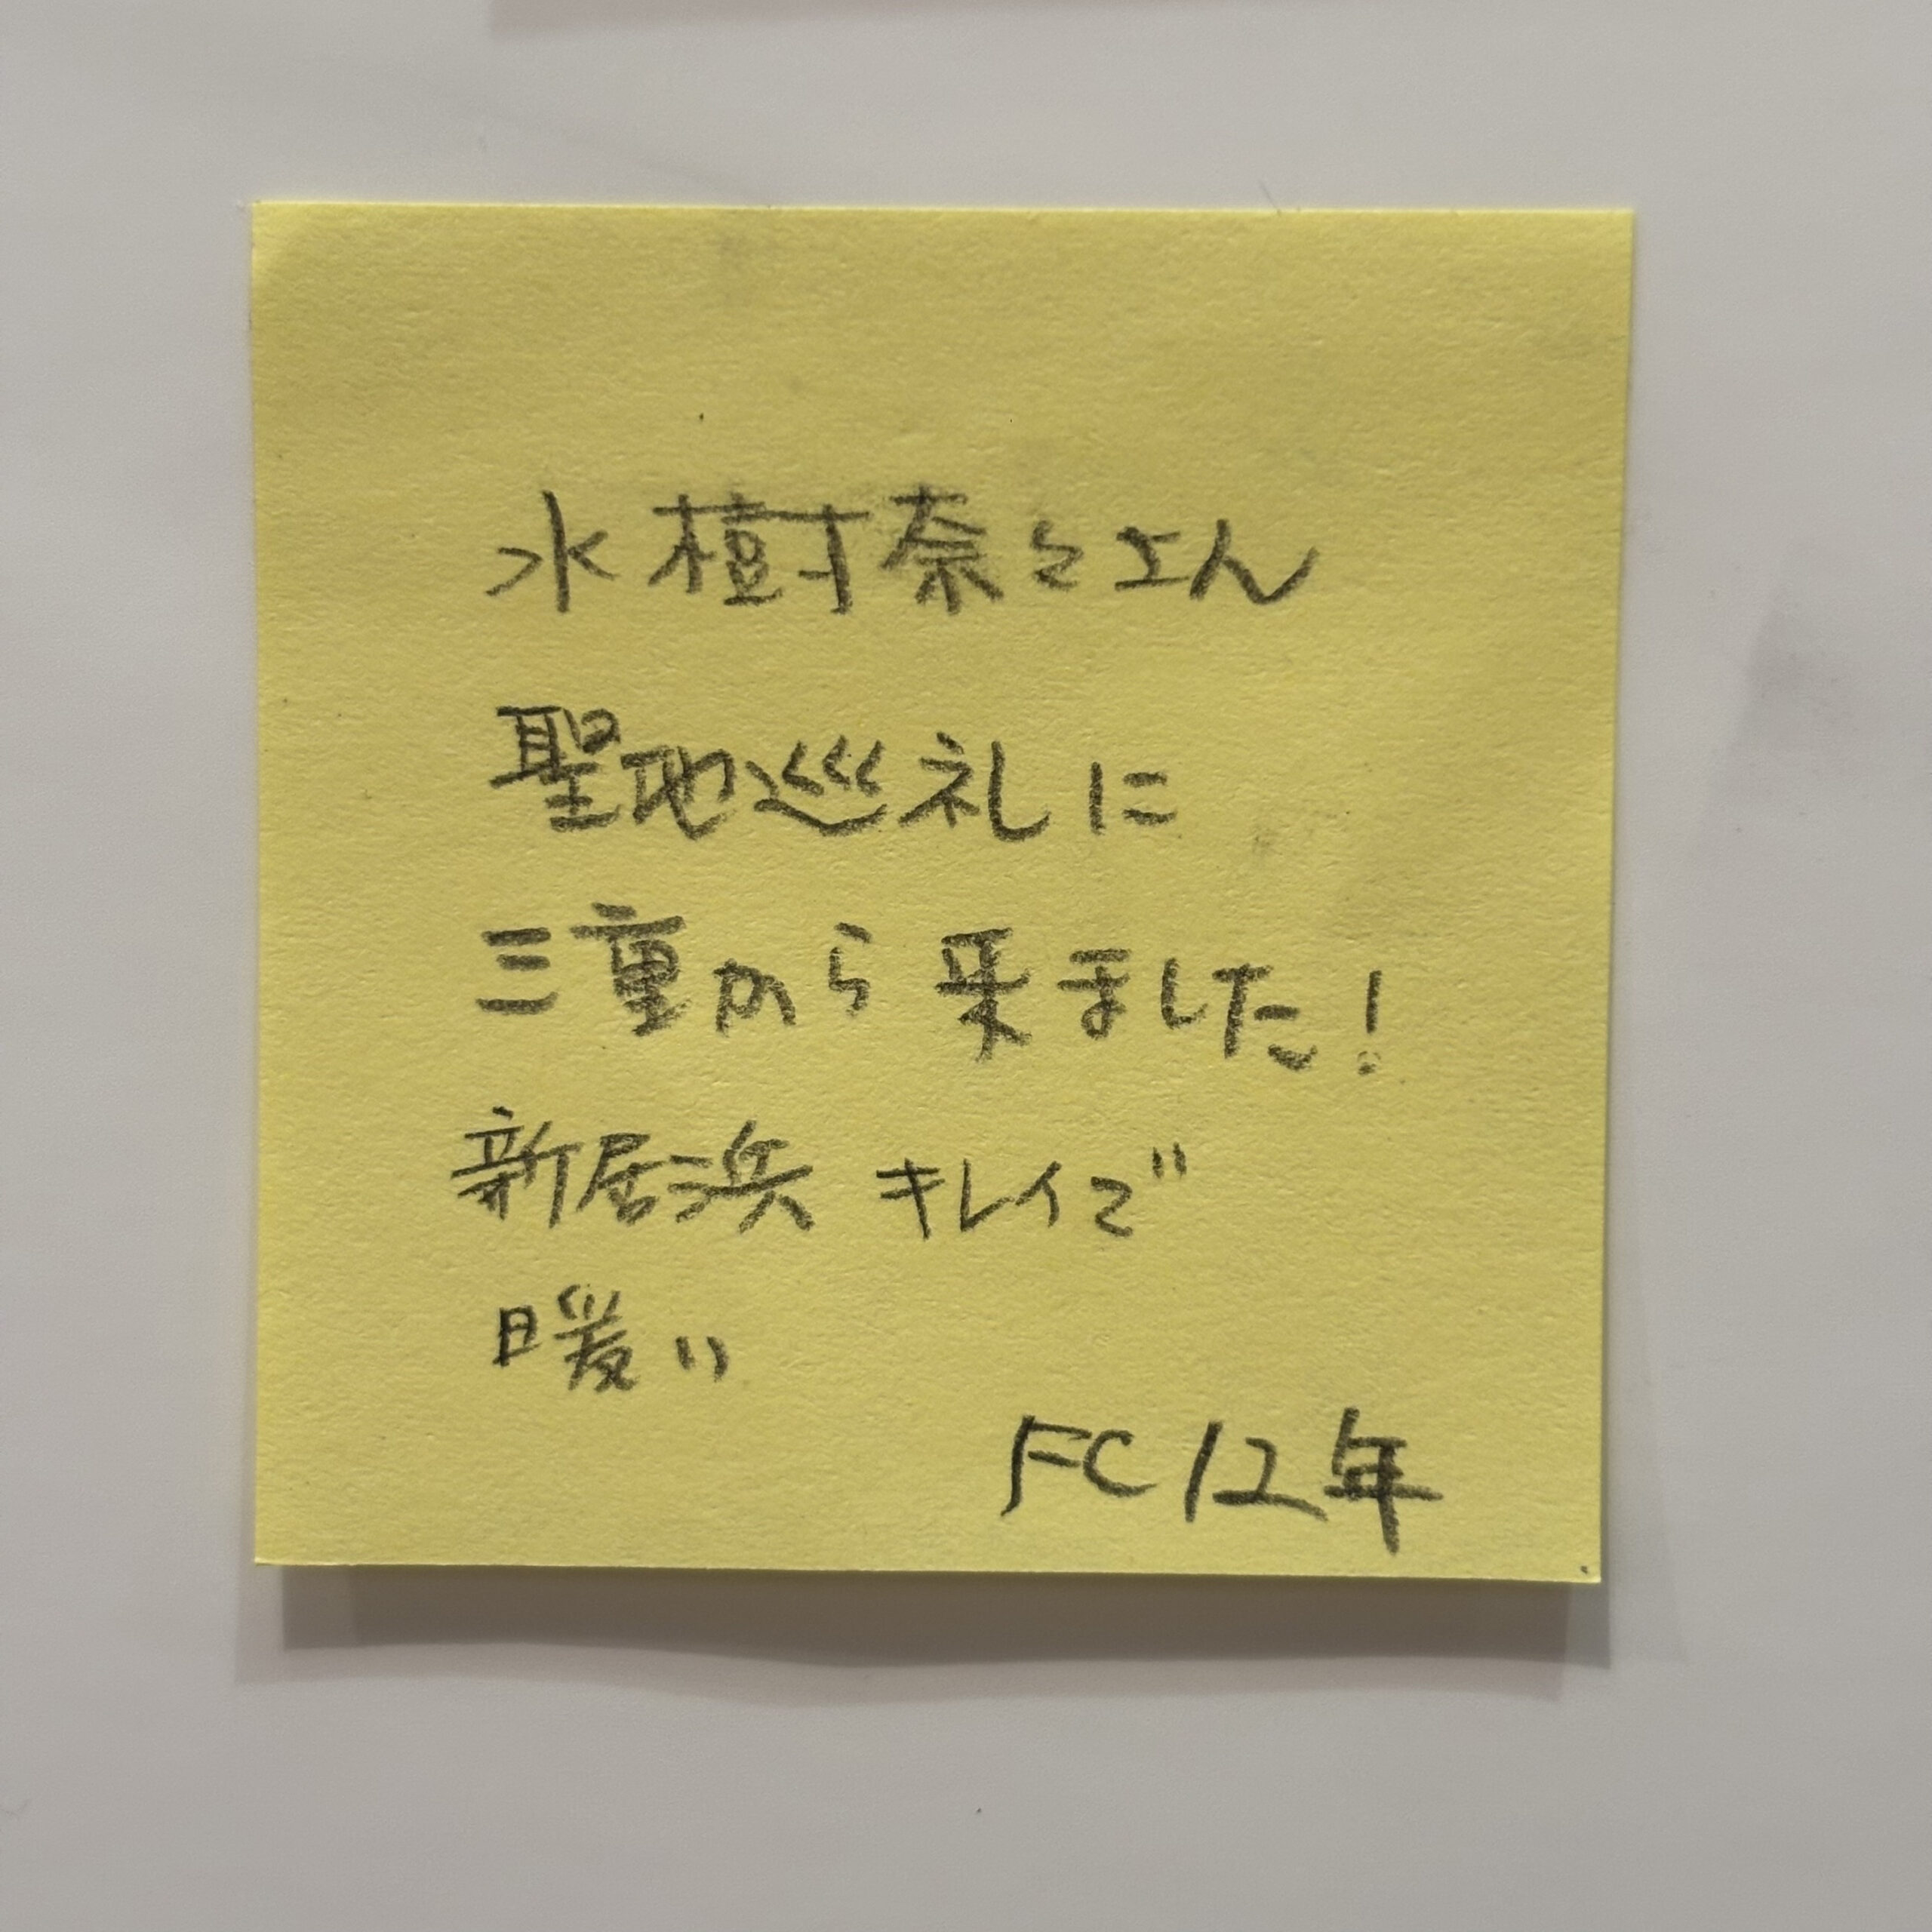 水樹奈々さん
聖地巡礼に
三重から来ました!
新居浜 キレイで
暖い
FC12年